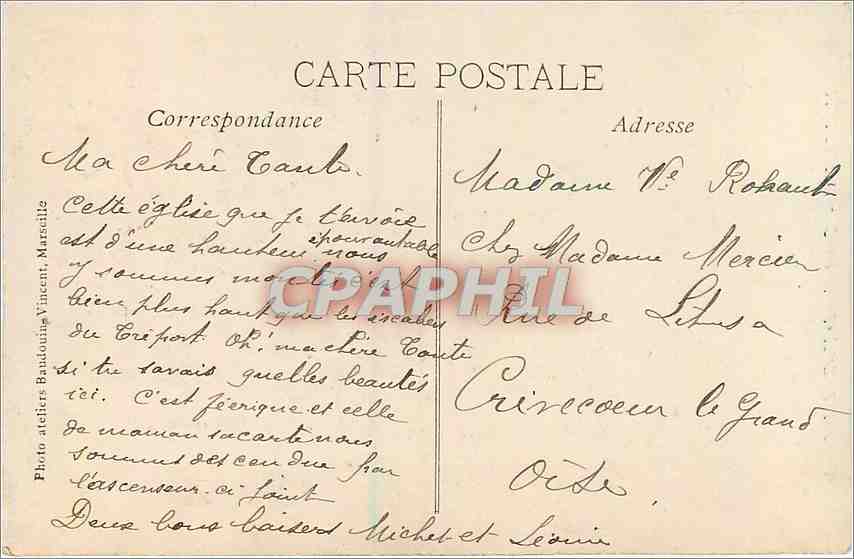 CARTE POSTALE
Correspondance
Ma chère Tante.
Cette église que je t'envoie
est d'une hauteur épouvantable
nous
y sommes monté c'est
bien plus haut que les escaliers
du Tréport Oh! ma chère Tante
si tu savais quelles beautés
ici. C'est féerique et celle
de maman sa carte nous
sommes descendue par
l'ascenseur ci joint
Deux bons baisers Michel et Léonie
Adresse
Madame Ve
Chez Madame Mercier
Rue de
Crèvecoeur le Grand
Oise
Photo ateliers Baudouin-Vincent, Marseille
CPAPHIL